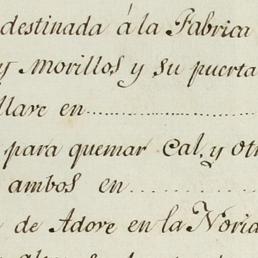 destinada á la Fabrica
y Morillos y su puerta
llave en....................
para quemar Cal, y otr
ambos en ...............
de Adove en la Noria